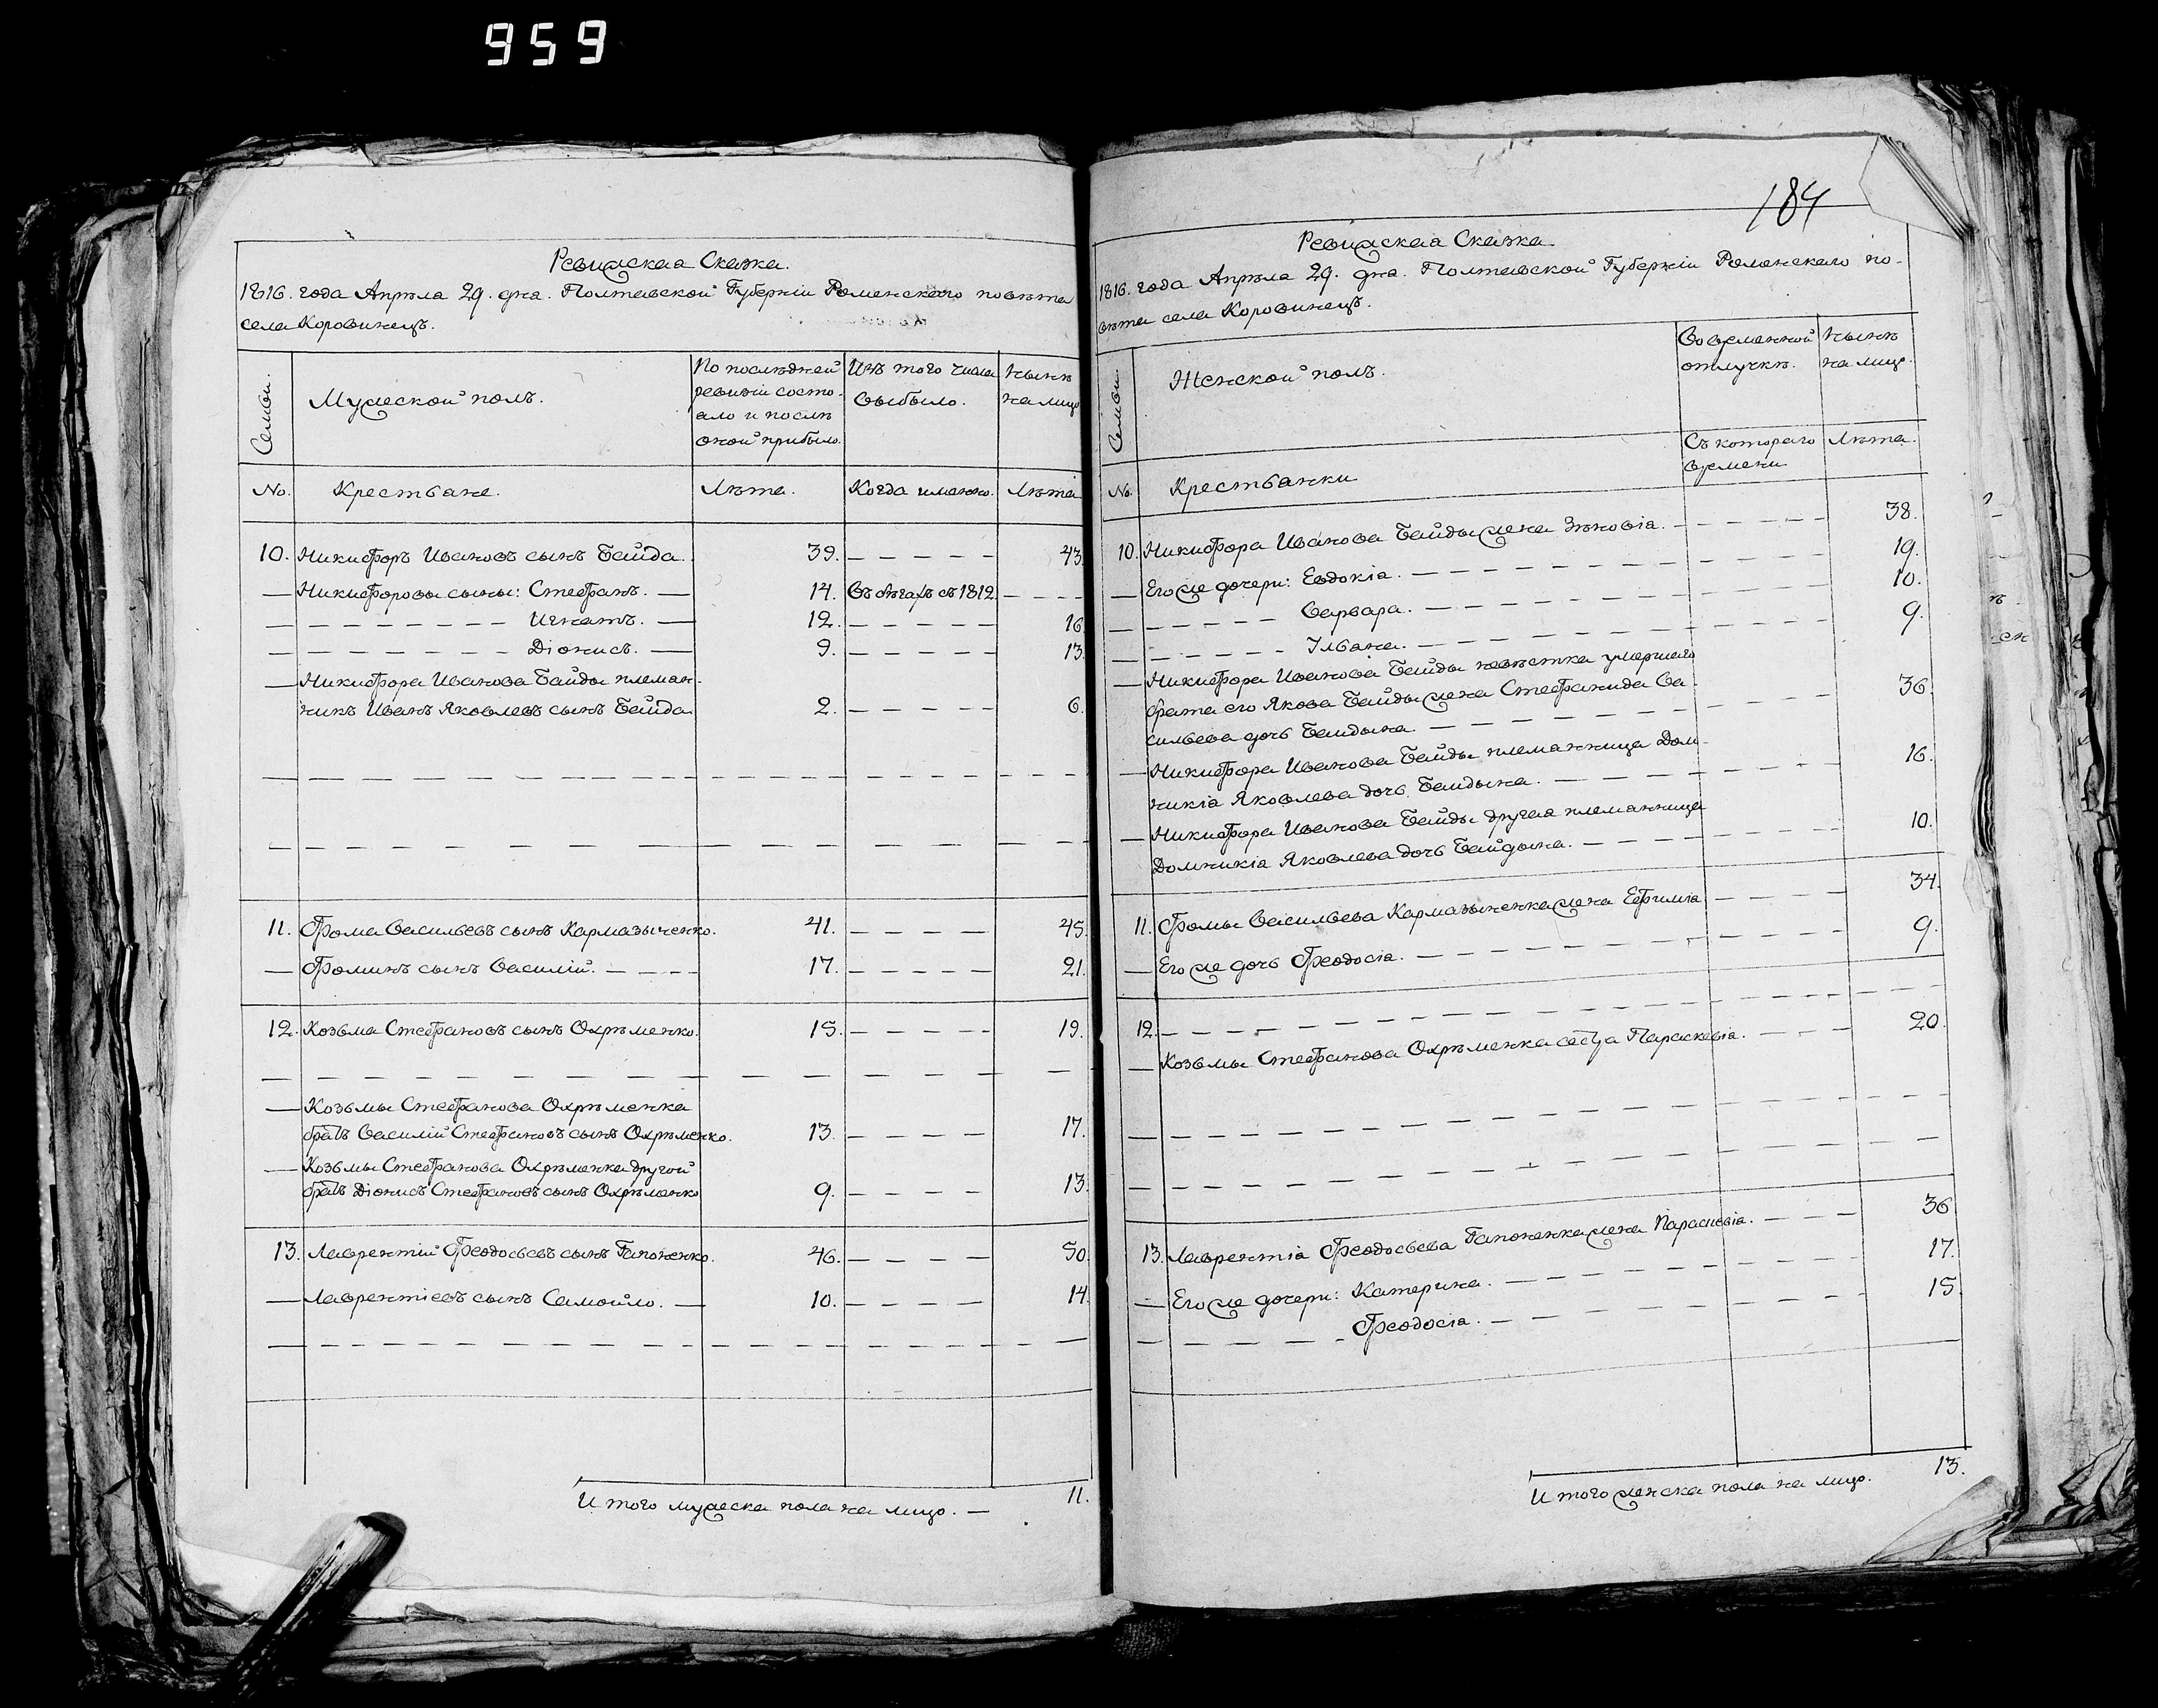 959
Ревижская Сказка.
1816. года Апрѣля 29. дня. Полтавской Губерніи Роменскаго повѣта
села Коровинецъ.
Семьи.
Мужеской полъ.
По послѣдней
ревизіи состо-
яло и послѣ
оной прибыло.
Изъ того числа
выбыло.
Нынѣ
на лицо
No.
Крестьяне.
Лѣта.
Когда именно.
Лѣта
10. Никифоръ Ивановъ сынъ Байда. 39. — — — — — 43.
— Никифоровы сыны: Стефанъ. — 14. — — — —
— — — — — — — — Игнатъ. — 12. — — — — — 16.
— — — — — — — — Діонисъ. — 9. — — — — — 13.
— Никифора Иванова Байды племян-
никъ Иванъ Яковлевъ сынъ Байда 2. — — — — — 6.
11. Фома Васильевъ сынъ Кармазыненко. 41. — — — — 45.
— Фоминъ сынъ Василій. — — — — 17. — — — — — 21.
12. Козьма Стефановъ сынъ Охрѣменко. 15. — — — — - 19.
— Козьмы Стефанова Охрѣменка
братъ Василій Стефановъ сынъ Охрѣменко. 13. — — — — 17.
— Козьмы Стефанова Охрѣменка другой
братъ Діонисъ Стефановъ сынъ Охрѣменко 9. — — — — 13.
13. Лаврентій Феодосьевъ сынъ Гапоненко. 46. — — — — 50.
— Лаврентіевъ сынъ Самойло. — 10. — — — — 14
И того мужеска пола на лицо. — 11.
184
Ревижская Сказка.
1816. года Апрѣля 29. дня. Полтавской Губерніи Роменскаго по-
вѣта села Коровинецъ.
Семьи.
Женской полъ.
Во временной
отлучкѣ.
Нынѣ
на лицо.
Съ котораго
времени
Лѣта.
No.
Крестьянки
10. Никифора Иванова Байды жена Зѣновія. — — — — — 38.
— Его же дочери: Евдокія. — — — — — 19.
— — — — — — Варвара. — — — — — 10.
— — — — — — Ульяна. — — — — — 9.
— Никифора Иванова Байды невѣстка умершаго
брата его Якова Байды жена Стефанида Ва-
сильева дочь Байдына — — — — — 36.
— Никифора Иванова Байды племянница Дом-
никія Яковлева дочь Байдына. — — — — — 16.
— Никифора Иванова Байды другая племянница
Домникія Яковлева дочь Байдына. — — — — — 10.
11. Фомы Васильева Кармазыненка жена Ефимія — — — — 34.
— Его же дочь Феодосія. — — — — — 9.
12. — — — — — — — —
— Козьмы Стефанова Охрѣменка сестра Параскевія. — — — — 20.
13. Лаврентія Феодосьева Гапоненка жена Параскевія. — — — 36
— Его же дочери: Катерина. — — — — — 17.
— — — — — Феодосія. — — — — — 15.
И того женска пола на лицо. 13.